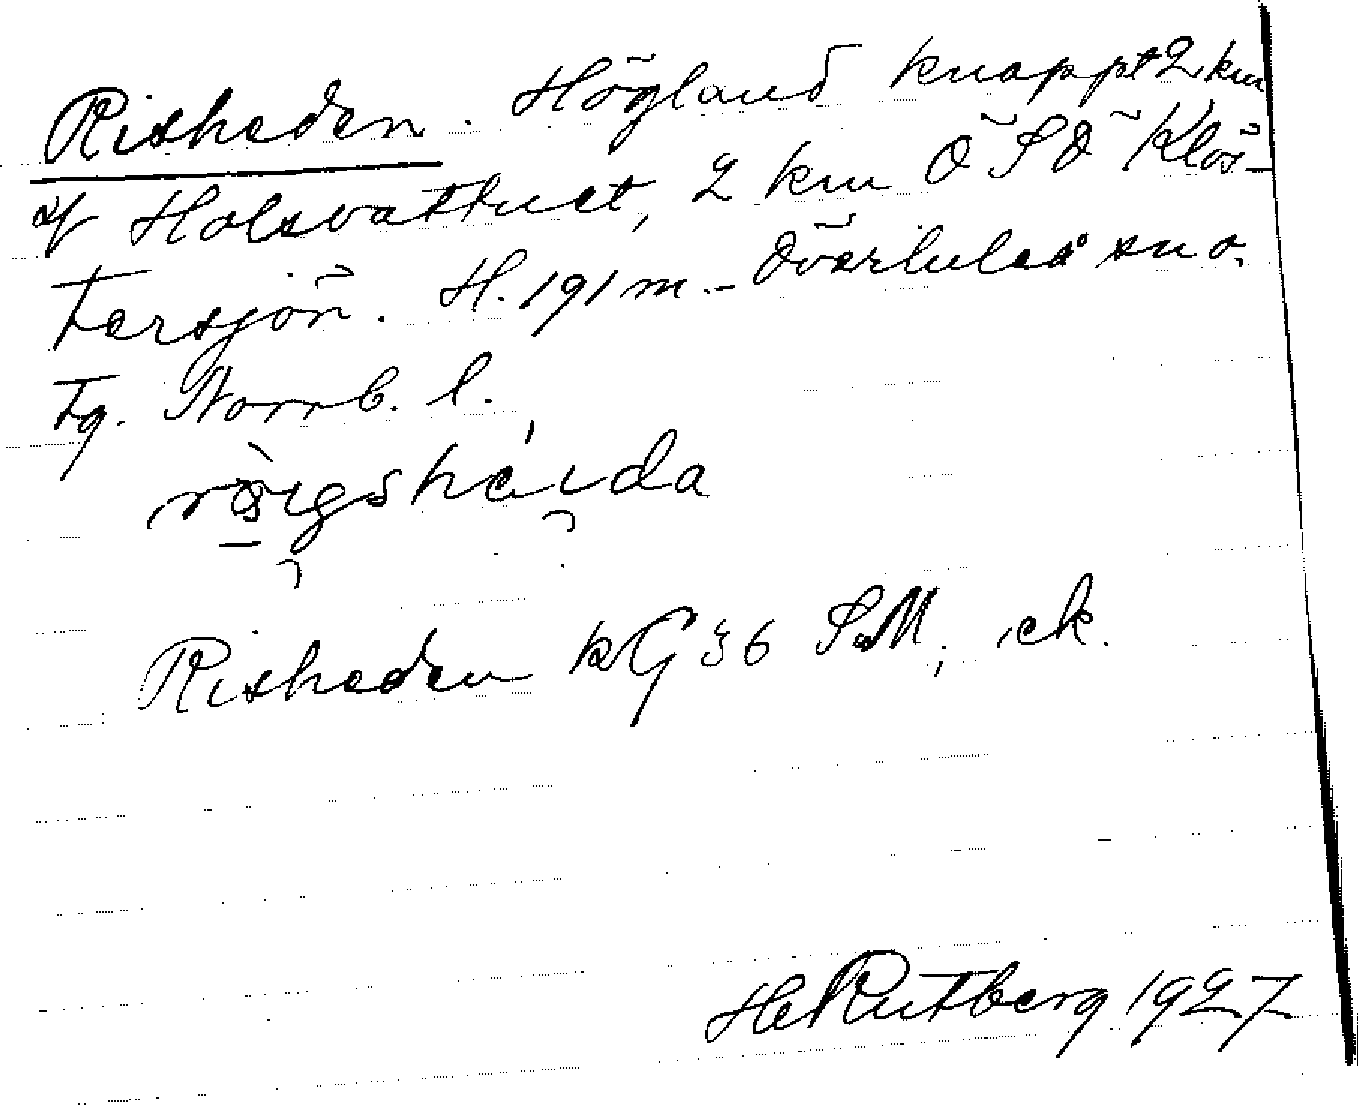 Risheden. Högland knappt 2 km
af Holsvattnet, 2 km Ö S Ö Klös-
tersjön. H. 191 m. - Överluleå sn o.
Tg. Norrb. l.
Risheden kG 36 S.M, ek.
H Rutberg 1927